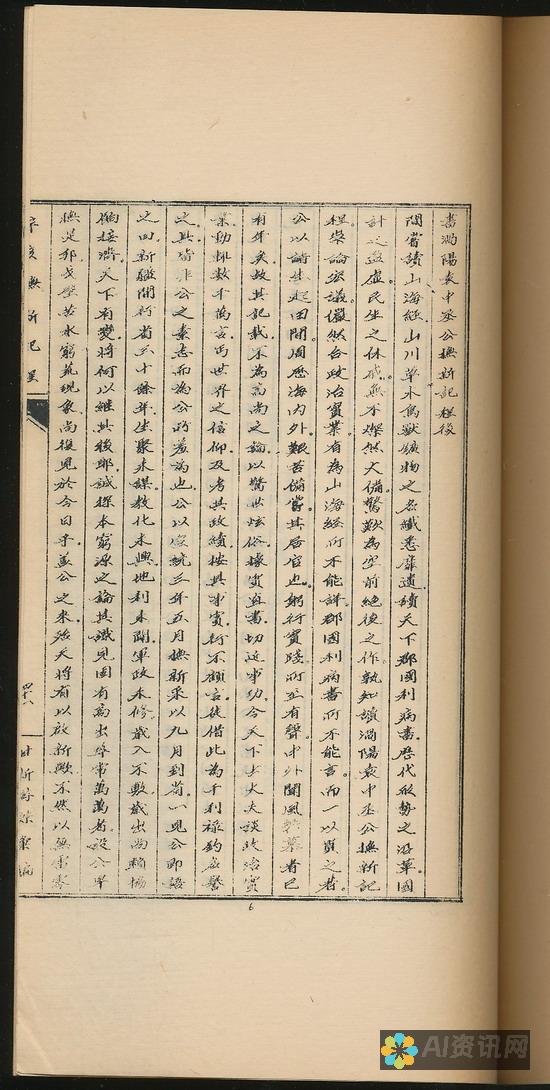 書渦陽袁中丞公撫新記程後
間嘗讀山海經山川草木鳥獸鑛物之名纖悉靡遺讀天下郡國利病書歷代形勢之沿革國
計之盈虛民生之休戚無不燦然大備驚歎為空前絕後之作孰知讀渦陽袁中丞公撫新記
程崇論宏議儼然台政治實業有為山海經所不能詳郡國利病書所不能言而一以貫之者
公以諸生起田間周歷海內外艱苦備嘗其居官也躬行實踐所至有聲中外聞風者已
有年矣故其記載不為高尚之論以驚世炫俗據實直書切近事功今天下士大夫談政治實
業動輒數千萬言為世界之信仰及考其政績按其事實行不顧言徒借此為干利祿釣名譽
之具皆非公之素志而為公所羞為也公以宣統三年五月撫新采以九月到省一見公即語
之曰新疆開行省三十餘年生聚未蕃教化未興地利未闢軍政未修歲入不敷歲出尚賴協
餉接濟天下有變將何以繼其後耶誠探本窮源之論其識見固有高出尋常萬萬者設公早
撫是邦戈壁苦水窮荒現象尚復見於今日乎蓋公之來殆天將有以啟新歟不然以無
辛亥撫新記程
四十六
甘新游蹤彙編
6
AI资讯网